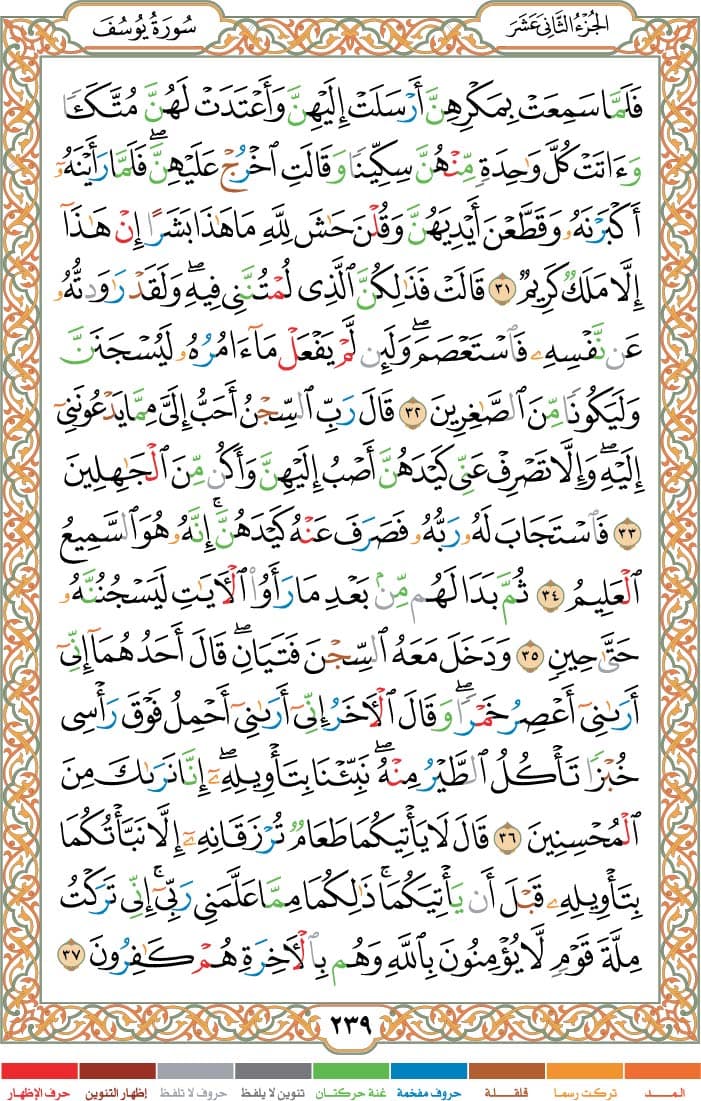 الجُزْءُ الثَّانِي عَشَرَ
سُورَةُ يُوسُفَ
فَلَمَّا سَمِعَتْ بِمَكْرِهِنَّ أَرْسَلَتْ إِلَيْهِنَّ وَأَعْتَدَتْ لَهُنَّ مُتَّكَـًٔا
وَءَاتَتْ كُلَّ وَٰحِدَةٍ مِّنْهُنَّ سِكِّينًا وَقَالَتِ ٱخْرُجْ عَلَيْهِنَّ ۖ فَلَمَّا رَأَيْنَهُۥٓ
أَكْبَرْنَهُۥ وَقَطَّعْنَ أَيْدِيَهُنَّ وَقُلْنَ حَٰشَ لِلَّهِ مَا هَٰذَا بَشَرًا إِنْ هَٰذَآ
إِلَّا مَلَكٌ كَرِيمٌ ٣١ قَالَتْ فَذَٰلِكُنَّ ٱلَّذِى لُمْتُنَّنِى فِيهِ ۖ وَلَقَدْ رَٰوَدتُّهُۥ
عَن نَّفْسِهِۦ فَٱسْتَعْصَمَ ۖ وَلَئِن لَّمْ يَفْعَلْ مَآ ءَامُرُهُۥ لَيُسْجَنَنَّ
وَلَيَكُونًا مِّنَ ٱلصَّٰغِرِينَ ٣٢ قَالَ رَبِّ ٱلسِّجْنُ أَحَبُّ إِلَىَّ مِمَّا يَدْعُونَنِىٓ
إِلَيْهِ ۖ وَإِلَّا تَصْرِفْ عَنِّى كَيْدَهُنَّ أَصْبُ إِلَيْهِنَّ وَأَكُن مِّنَ ٱلْجَٰهِلِينَ
٣٣ فَٱسْتَجَابَ لَهُۥ رَبُّهُۥ فَصَرَفَ عَنْهُ كَيْدَهُنَّ ۚ إِنَّهُۥ هُوَ ٱلسَّمِيعُ
ٱلْعَلِيمُ ٣٤ ثُمَّ بَدَا لَهُم مِّنۢ بَعْدِ مَا رَأَوُا۟ ٱلْءَايَٰتِ لَيَسْجُنُنَّهُۥ
حَتَّىٰ حِينٍ ٣٥ وَدَخَلَ مَعَهُ ٱلسِّجْنَ فَتَيَانِ ۖ قَالَ أَحَدُهُمَآ إِنِّىٓ
أَرَىٰنِىٓ أَعْصِرُ خَمْرًا ۖ وَقَالَ ٱلْءَاخَرُ إِنِّىٓ أَرَىٰنِىٓ أَحْمِلُ فَوْقَ رَأْسِى
خُبْزًا تَأْكُلُ ٱلطَّيْرُ مِنْهُ ۖ نَبِّئْنَا بِتَأْوِيلِهِۦٓ ۖ إِنَّا نَرَىٰكَ مِنَ
ٱلْمُحْسِنِينَ ٣٦ قَالَ لَا يَأْتِيكُمَا طَعَامٌ تُرْزَقَانِهِۦٓ إِلَّا نَبَّأْتُكُمَا
بِتَأْوِيلِهِۦ قَبْلَ أَن يَأْتِيَكُمَا ۚ ذَٰلِكُمَا مِمَّا عَلَّمَنِى رَبِّىٓ ۚ إِنِّى تَرَكْتُ
مِلَّةَ قَوْمٍ لَّا يُؤْمِنُونَ بِٱللَّهِ وَهُم بِٱلْءَاخِرَةِ هُمْ كَٰفِرُونَ ٣٧
٢٣٩
المـــد تركت رسما قلقـلة حروف مفخمة غنة حركتان تنوين لا يلفظ حروف لا تلفظ إظهار التنوين حرف الإظهار